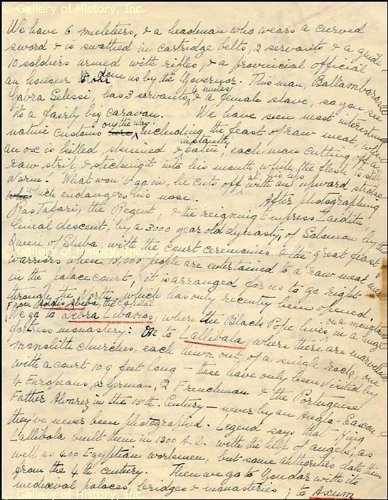 Gallery of History, Inc.
We have 6 muleteers, & a headman who wears a curved
sword & is swathed in cartridge belts, 2 servants & a guide
10 soldiers armed with rifles, & a provincial official
an honour done us by the Governor. This man, Baltambaras
Gabra Selissi, has 3 servants, 2 mules & a female slave, so you see
caravan. We have seen most interesting
native customs on the way, including the feast of raw meat, when
an ox is killed skinned & eaten instantly, each man cutting off a
raw strip & into his mouth while the flesh is still
warm. What won't go in, he cuts off with an upward stroke
which endangers his nose. After photographing
Ras Tafari, the Regent, & the reigning Empress Zauditu
lineal descent, by a 3000 year old dynasty, of Solomon by the
Queen of Sheba, with the Court ceremonies & the great feast of
warriors when 15,000 people are entertained to a raw meat
in the palace court, it is arranged for us to go right
through the North, which has only recently been opened.
from Addis Ababa, the capital
We go to where the Black Pope lives, in a huge
fortress monastery; to Lalibala, where there are marvellous
monolith churches, each hewn out of a single rock, one
with a court 109 feet long - these have only been visited by
4 Europeans, a German, 2 Frenchmen & the Portuguese
Father Alvarez in the 15th Century - never by an Anglo-Saxon &
they've never been photographed. Legend says that King
Lalibala built them in 1300 A.D. with the help of angels, as
well as 400 Egyptian workmen, but some authorities date them
from the 4th century. Then we go to Gondar with its
mediaeval palaces, bridges & monasteries & to Axum